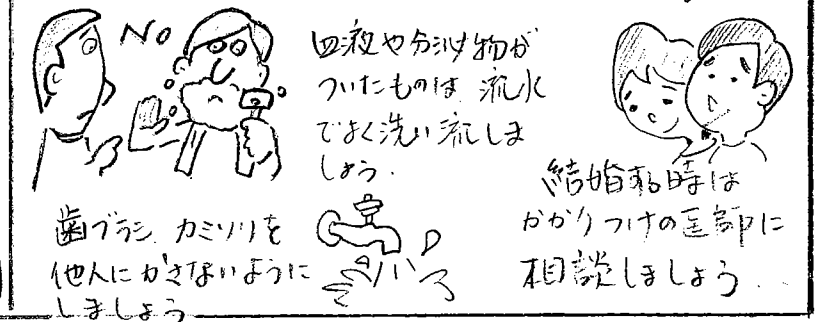 NO
血液や分泌物が
ついたものは 流水
でよく洗い流しま
しょう.
歯ブラシ、カミソリを
他人にかさないように
しましょう
結婚する時は
かかりつけの医師に
相談しましょう...